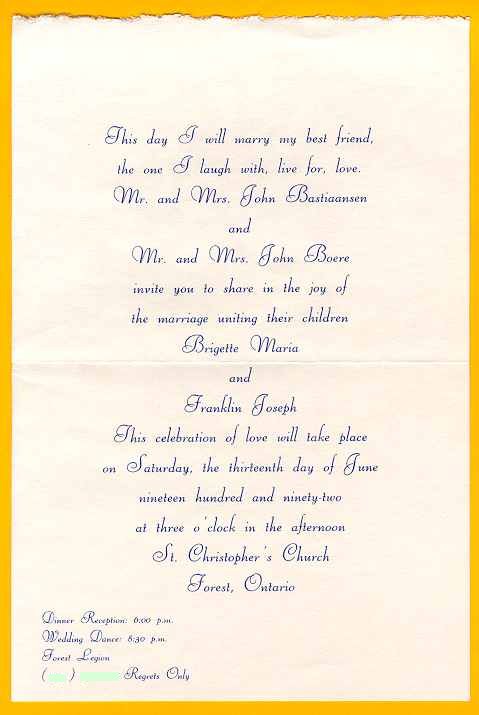 This day I will marry my best friend,
the one I laugh with, live for, love.
Mr. and Mrs. John Bastiaansen
and
Mr. and Mrs. John Boere
invite you to share in the joy of
the marriage uniting their children
Brigette Maria
and
Franklin Joseph
This celebration of love will take place
on Saturday, the thirteenth day of June
nineteen hundred and ninety-two
at three o'clock in the afternoon
St. Christopher's Church
Forest, Ontario
Dinner Reception: 6:00 p.m.
Wedding Dance: 8:30 p.m.
Forest Legion
( ) Regrets Only